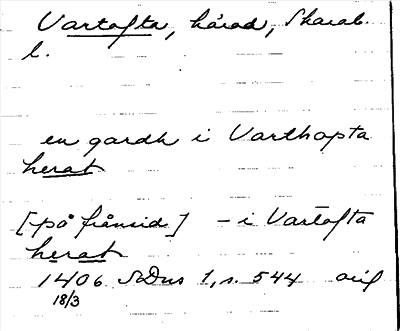 Vartofta, härad, Skarab.
l.
en gardh i Varthopta
herat
[på frånsid] – i Vartofta
herat
1406 SDns 1, s. 544 orig
18/3